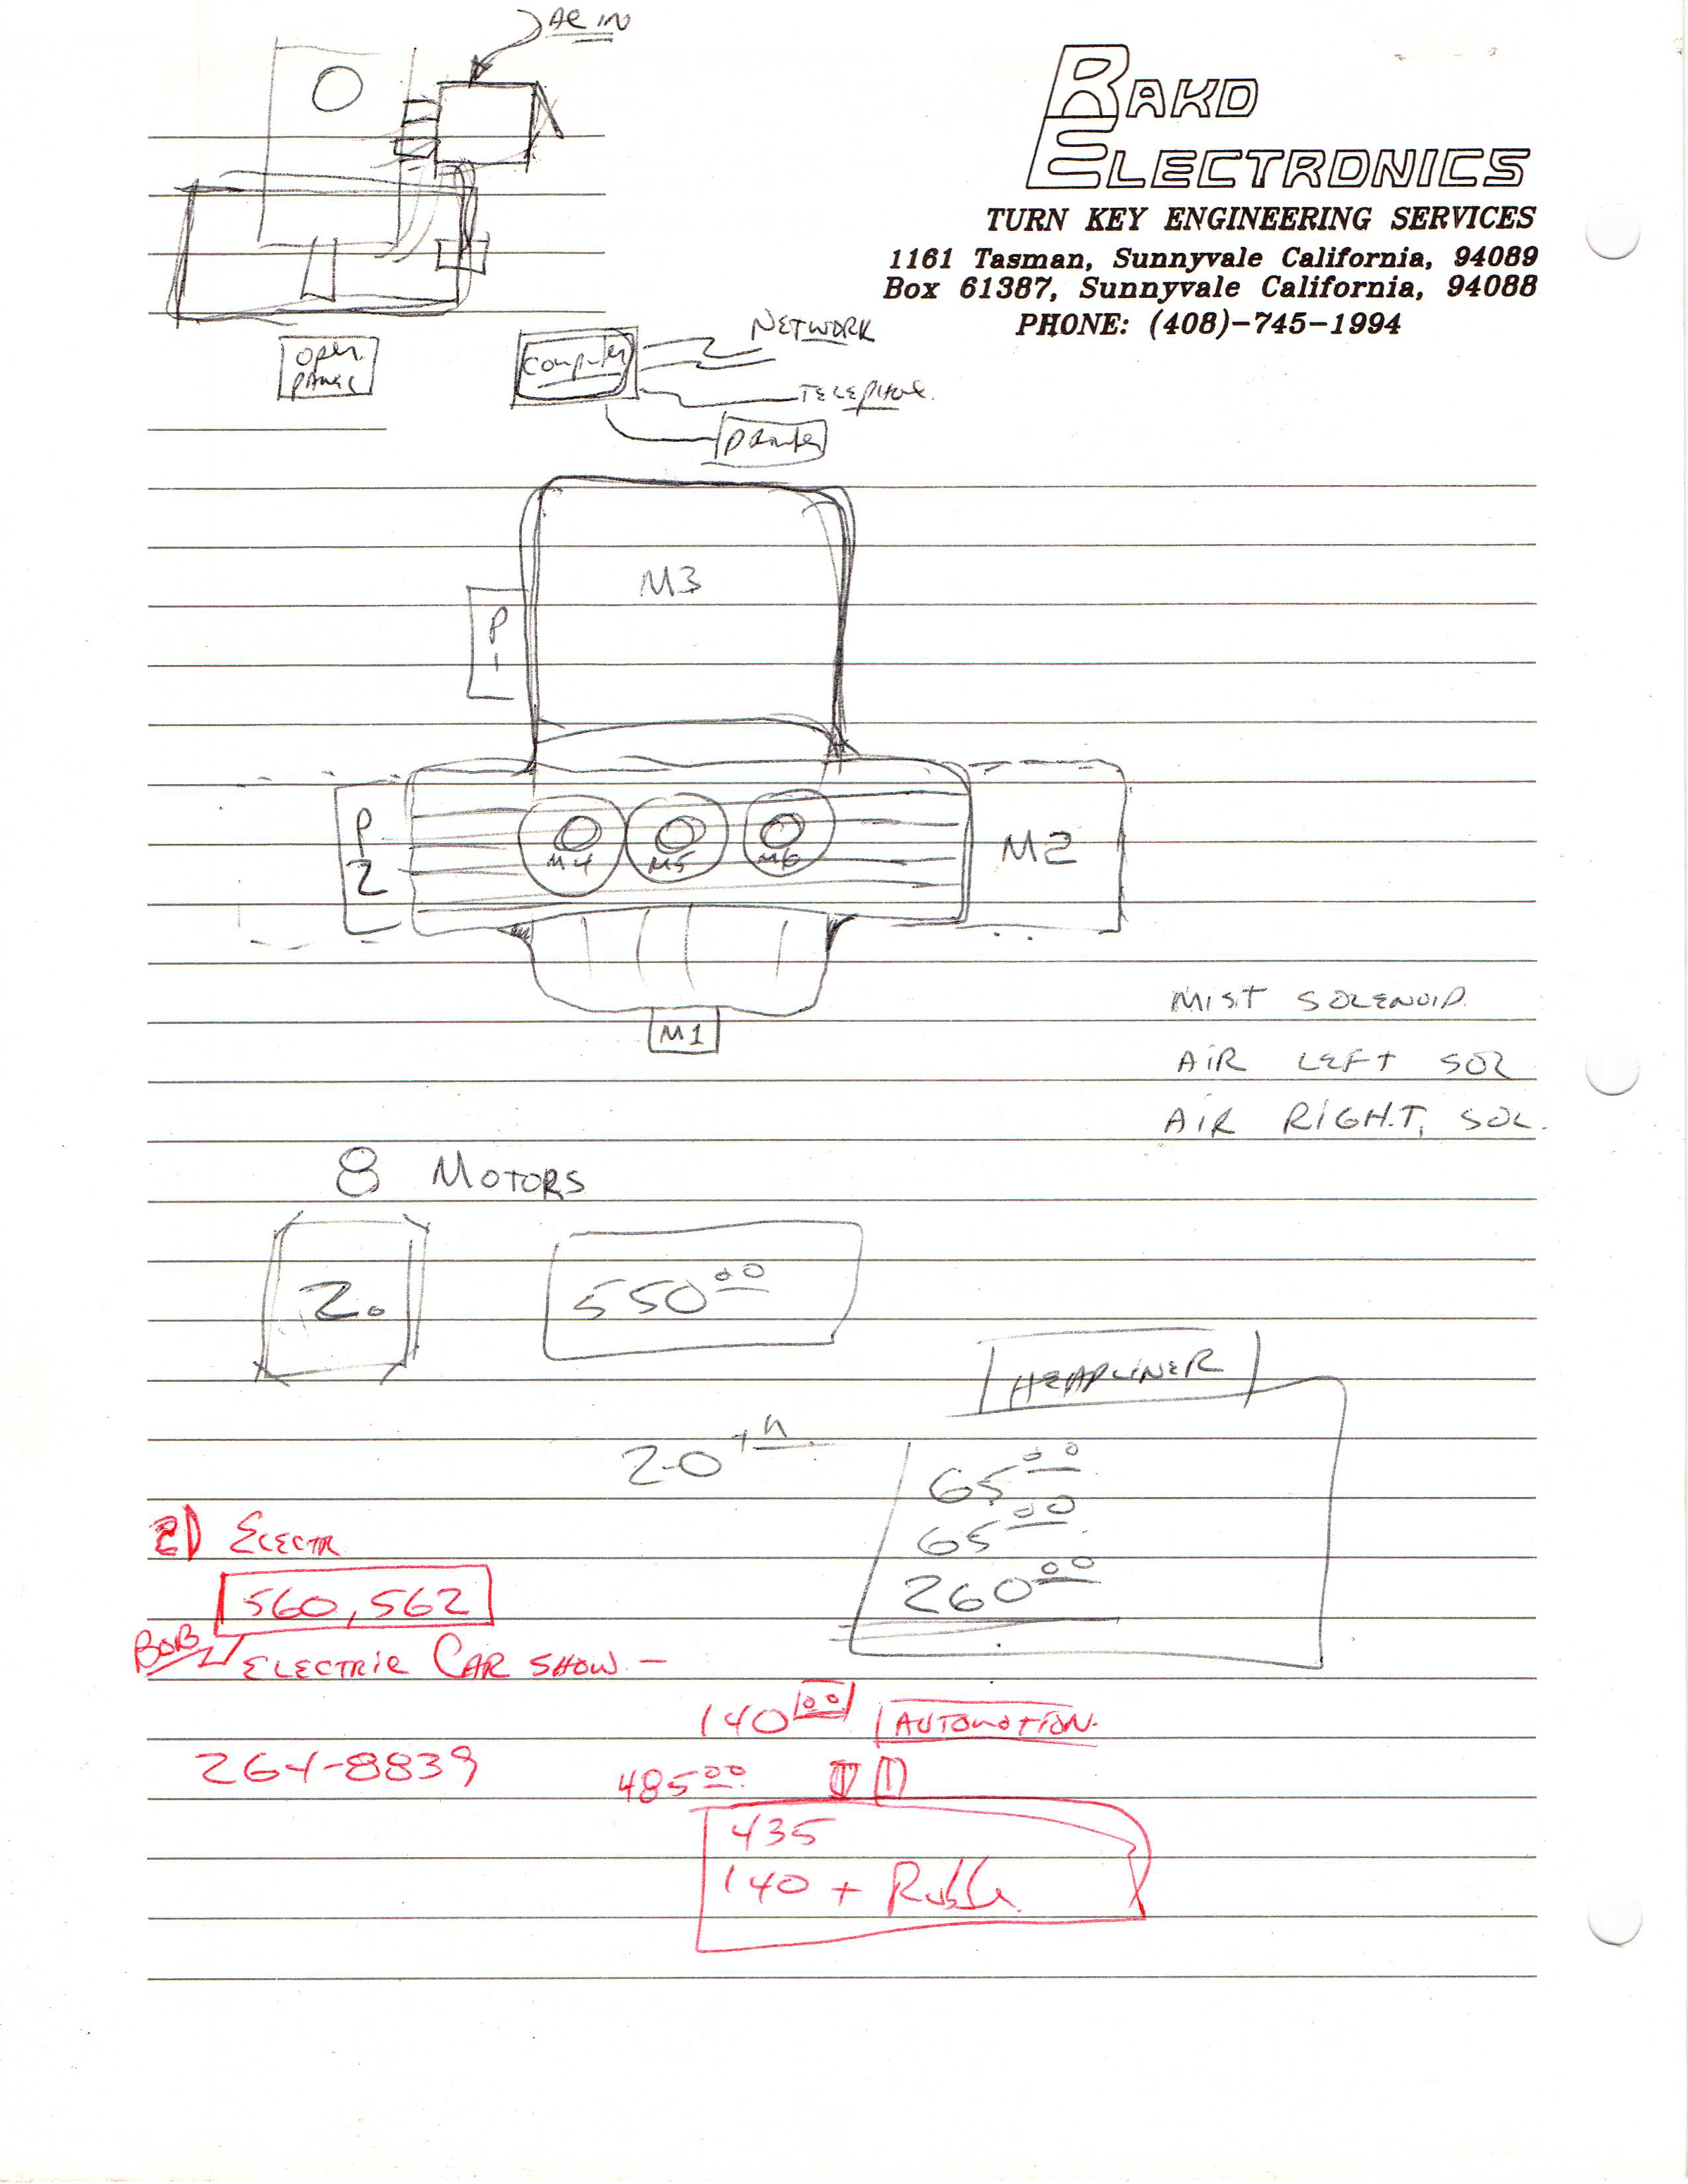 AC IN
RAKO
ELECTRONICS
TURN KEY ENGINEERING SERVICES
1161 Tasman, Sunnyvale California, 94089
Box 61387, Sunnyvale California, 94088
PHONE: (408)-745-1994
OPER.
PANEL
COMPUTER
NETWORK
TELEPHONE.
PRINTER
M3
P
1
P
2
M4 M5 M6
M2
M1
MIST SOLENOID
AIR LEFT SOL
AIR RIGHT, SOL.
8 MOTORS
2.
550 00
HEADLINER
20 th
65 00
65 00
260 00
2) ELECTR
560, 562
BOB
ELECTRIC CAR SHOW -
140 00 AUTOMOTION.
264-8839
485 00
435
140 +